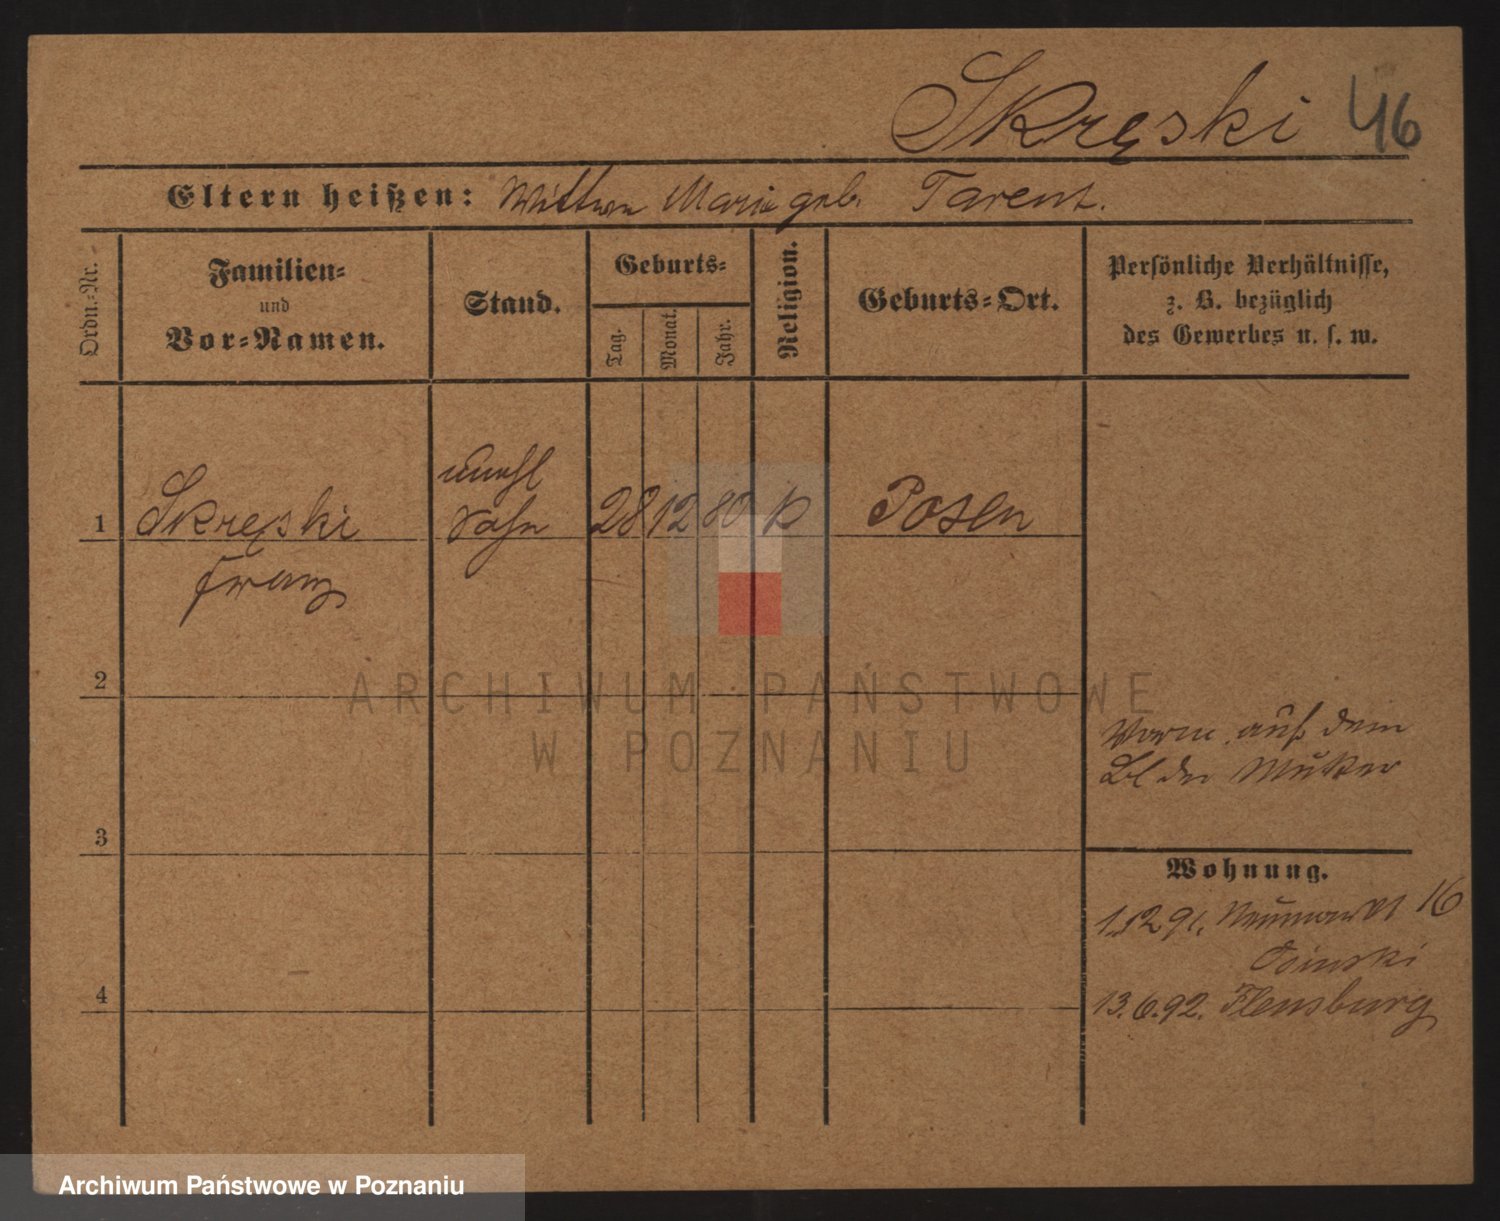 Skręski 46
Eltern heißen: Wittwe Marie geb. Tarent.
Ordn.-Nr.
Familien-
und
Vor-Namen.
Stand.
Geburts-
Tag.
Monat.
Jahr.
Religion.
Geburts-Ort.
Persönliche Verhältnisse,
z. B. bezüglich
des Gewerbes u. s. w.
unehl
1 Skręski Sohn 28 12 80 k Posen
Franz
2
ARCHIWUM PAŃSTWOWE
W POZNANIU
auf dem
Bl der Mutter
3
Wohnung.
1.12 91. Neumarkt 16
Osinski
4 13.6.92. Flensburg
Archiwum Państwowe w Poznaniu